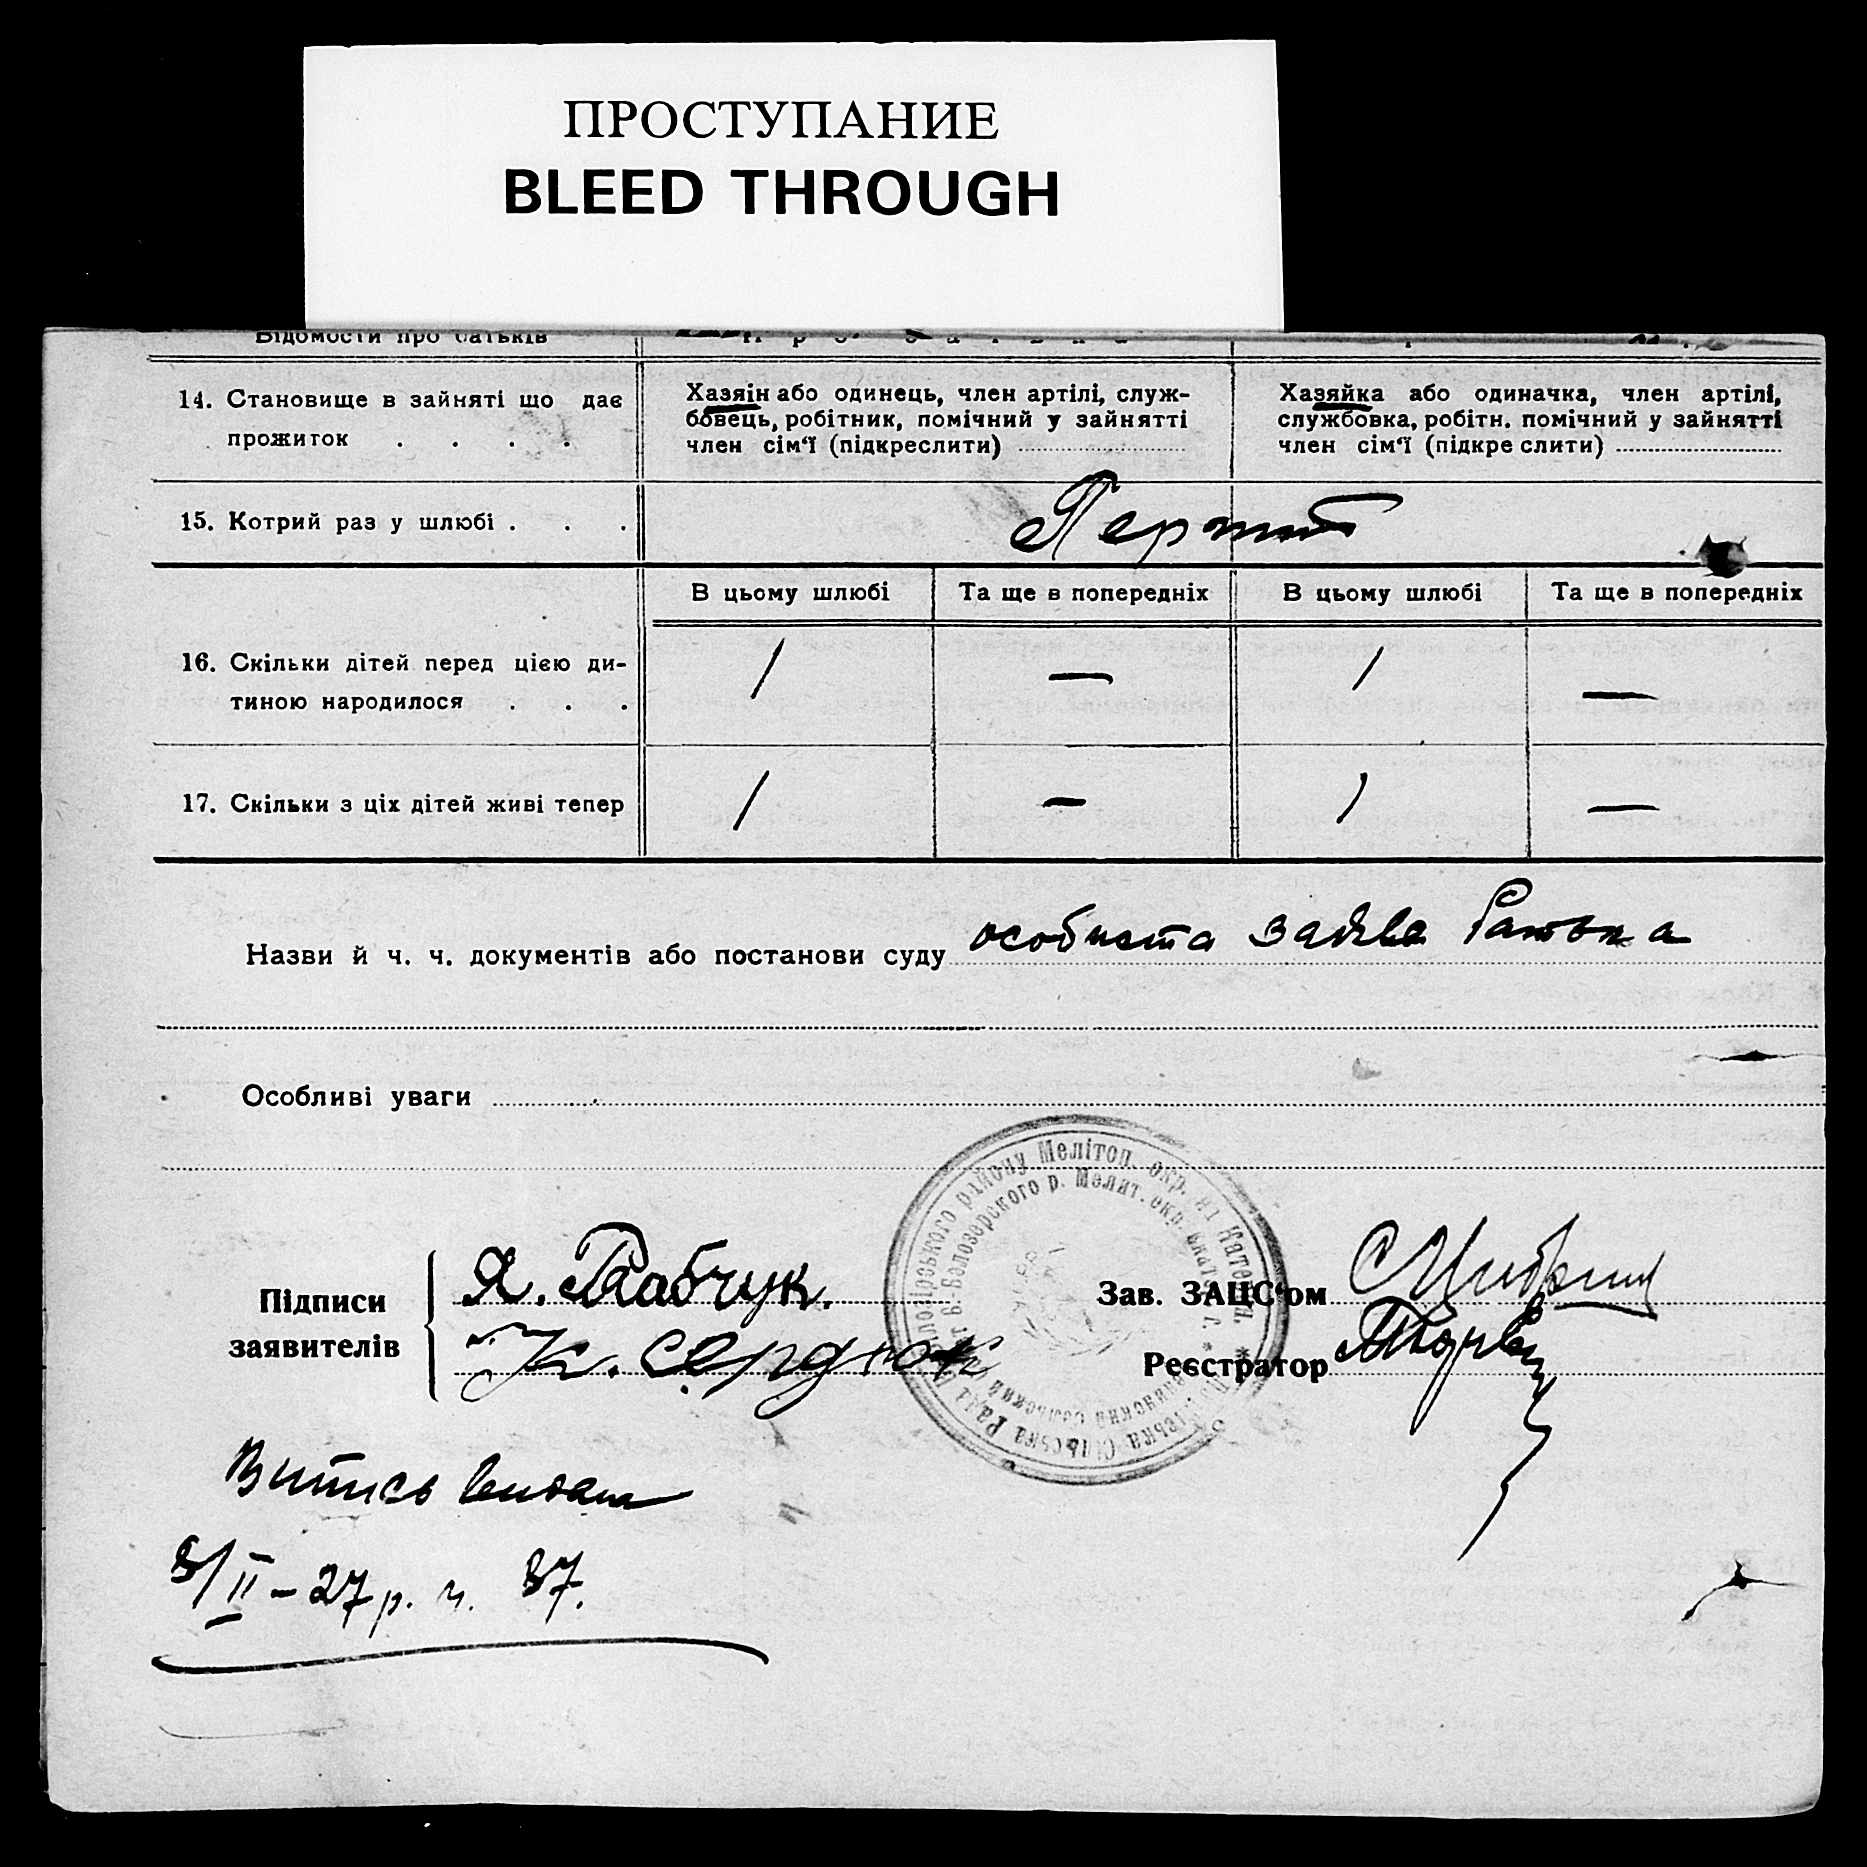 ПРОСТУПАНИЕ
BLEED THROUGH
Відомости про батьків
14. Становище в зайняті що дає
прожиток . . . .
Хазяїн або одинець, член артілі, служ-
бовець, робітник, помічний у зайнятті
член сім‘ї (підкреслити)
Хазяйка або одиначка, член артілі,
службовка, робітн. помічний у зайнятті
член сім‘ї (підкре слити)
15. Котрий раз у шлюбі . . .
В цьому шлюбі Та ще в попередніх В цьому шлюбі Та ще в попередніх
16. Скільки дітей перед цією ди-
тиною народилося . . .
/ — / —
17. Скільки з ціх дітей живі тепер / — / —
Назви й ч. ч. документів або постанови суду особиста заява батька
Особливі уваги
Підписи
заявителів
Я. Бабчук.
К. Сердюк
Зав. ЗАЦС‘ом
Реєстратор
району Мелітоп. окр. на Катер.
Белозерского р. Мелит. окр. Екат. г.
Сільська Рада
Витись видан
8/II – 27 р. ч. 37.